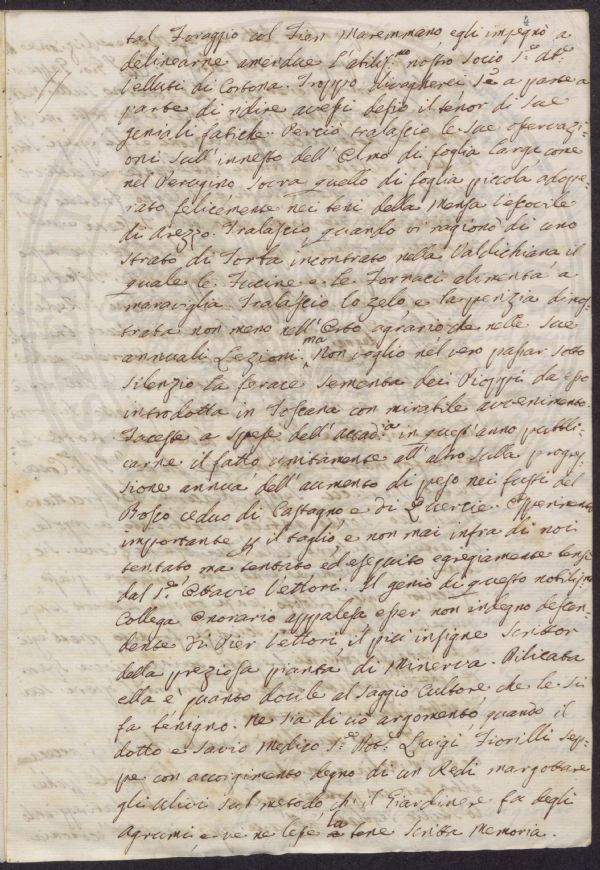 4
tal Foraggio col Fien Maremmano egli impegnò a
delinearne amendue l'abiliss.mo nostro socio S.r Ab.e
Velluti di Cortona. Troppo divagherei se a parte a
parte di ridire avessi desio il tenor di sue
geniali fatiche. Perciò tralascio le sue osservazi-
oni sull'innesto dell'Olmo di foglia larga come
nel Perugino sovra quello di foglia piccola adope-
rato felicemente nei teni della Mensa Vescovile
di Arezzo. Tralascio quando vi ragionò di uno
strato di Torba incontrato nella Valdichiana il
quale le Fucine e le Fornaci alimenta a
maraviglia. Tralascio lo zelo e la perizia dimos-
trata non meno nell'Orto agrario che nelle sue
annuali Lezioni. ma Non voglio nel vero passar sotto
silenzio la ferace sementa dei Pioppi da esso
introdotta in Toscana con mirabile avvenimento.
Faceste a spese dell'Accad.a in quest'anno pubbli-
carne il fatto unitamente all'altro sulla progres-
sione annua dell'aumento di peso nei fusti del
Bosco ceduo di Castagno e di Quercie. Esperimento
importante p il taglio, e non mai infra di noi
tentato ma tentato ed eseguito egregiamente
dal S.r Ottavio Vettori. Il genio di questo nobiliss.mo
Collega Onorario appalesa esser non indegno descen-
dente di Pier Vettori il più insigne Scrittor
della preziosa pianta di Minerva. Dilicata
ella è quanto docile al saggio Cultore che le si
fa benigno. Ne sia di ciò argomento, quando il
dotto e savio Medico S.r Dott. Luigi Fiorilli sep-
pe con accorgimento degno di un Redi margottare
gli Ulivi sul metodo ch'il Giardinere fa degli
Agrumi e ve ne lesse la bene scritta Memoria.